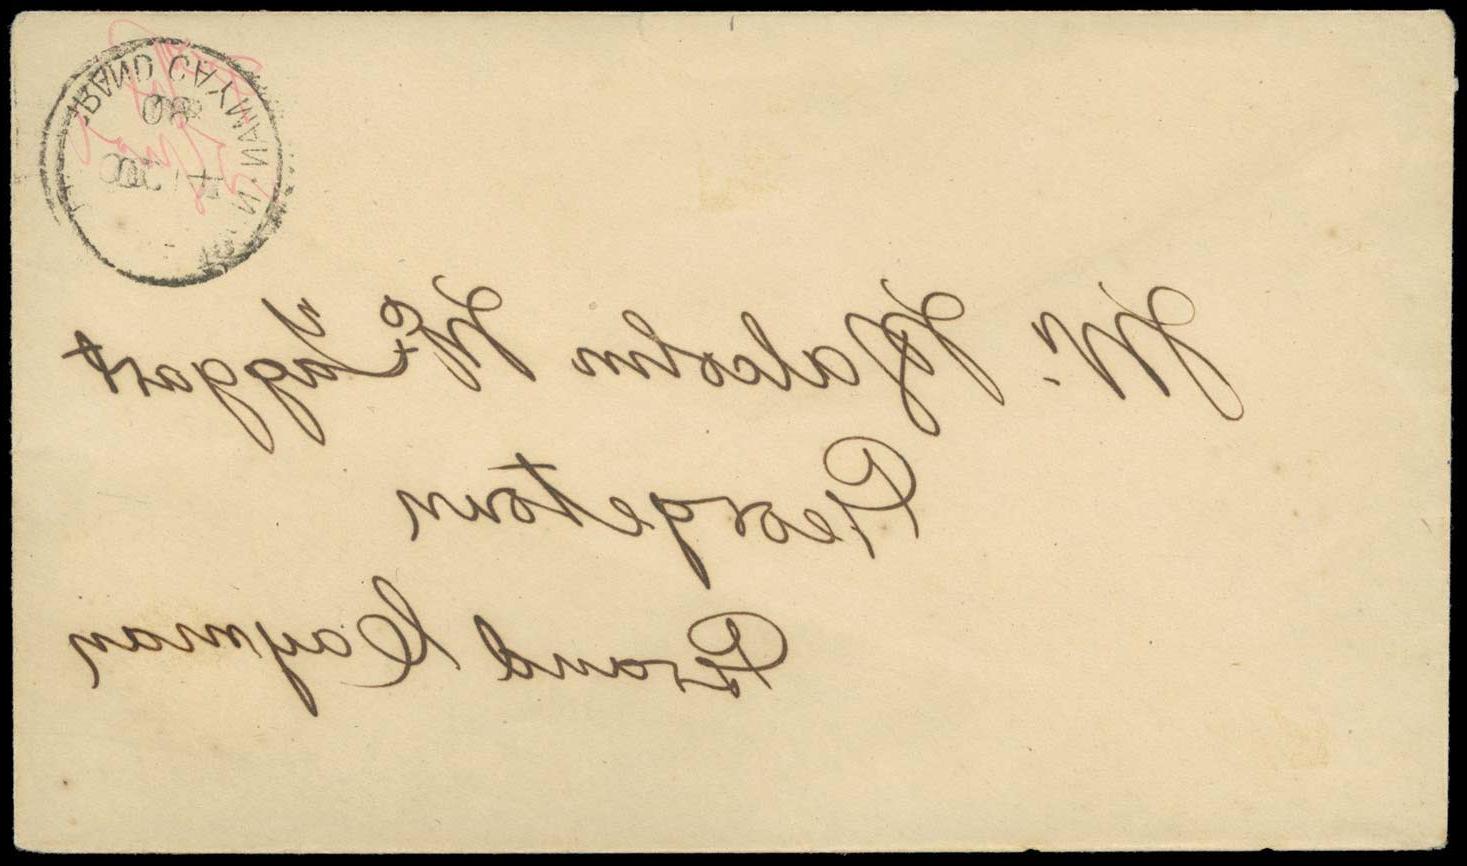 GRAND CAYMAN
08
OC 17
Mr. Malcolm McTaggart
Georgetown
Grand Cayman